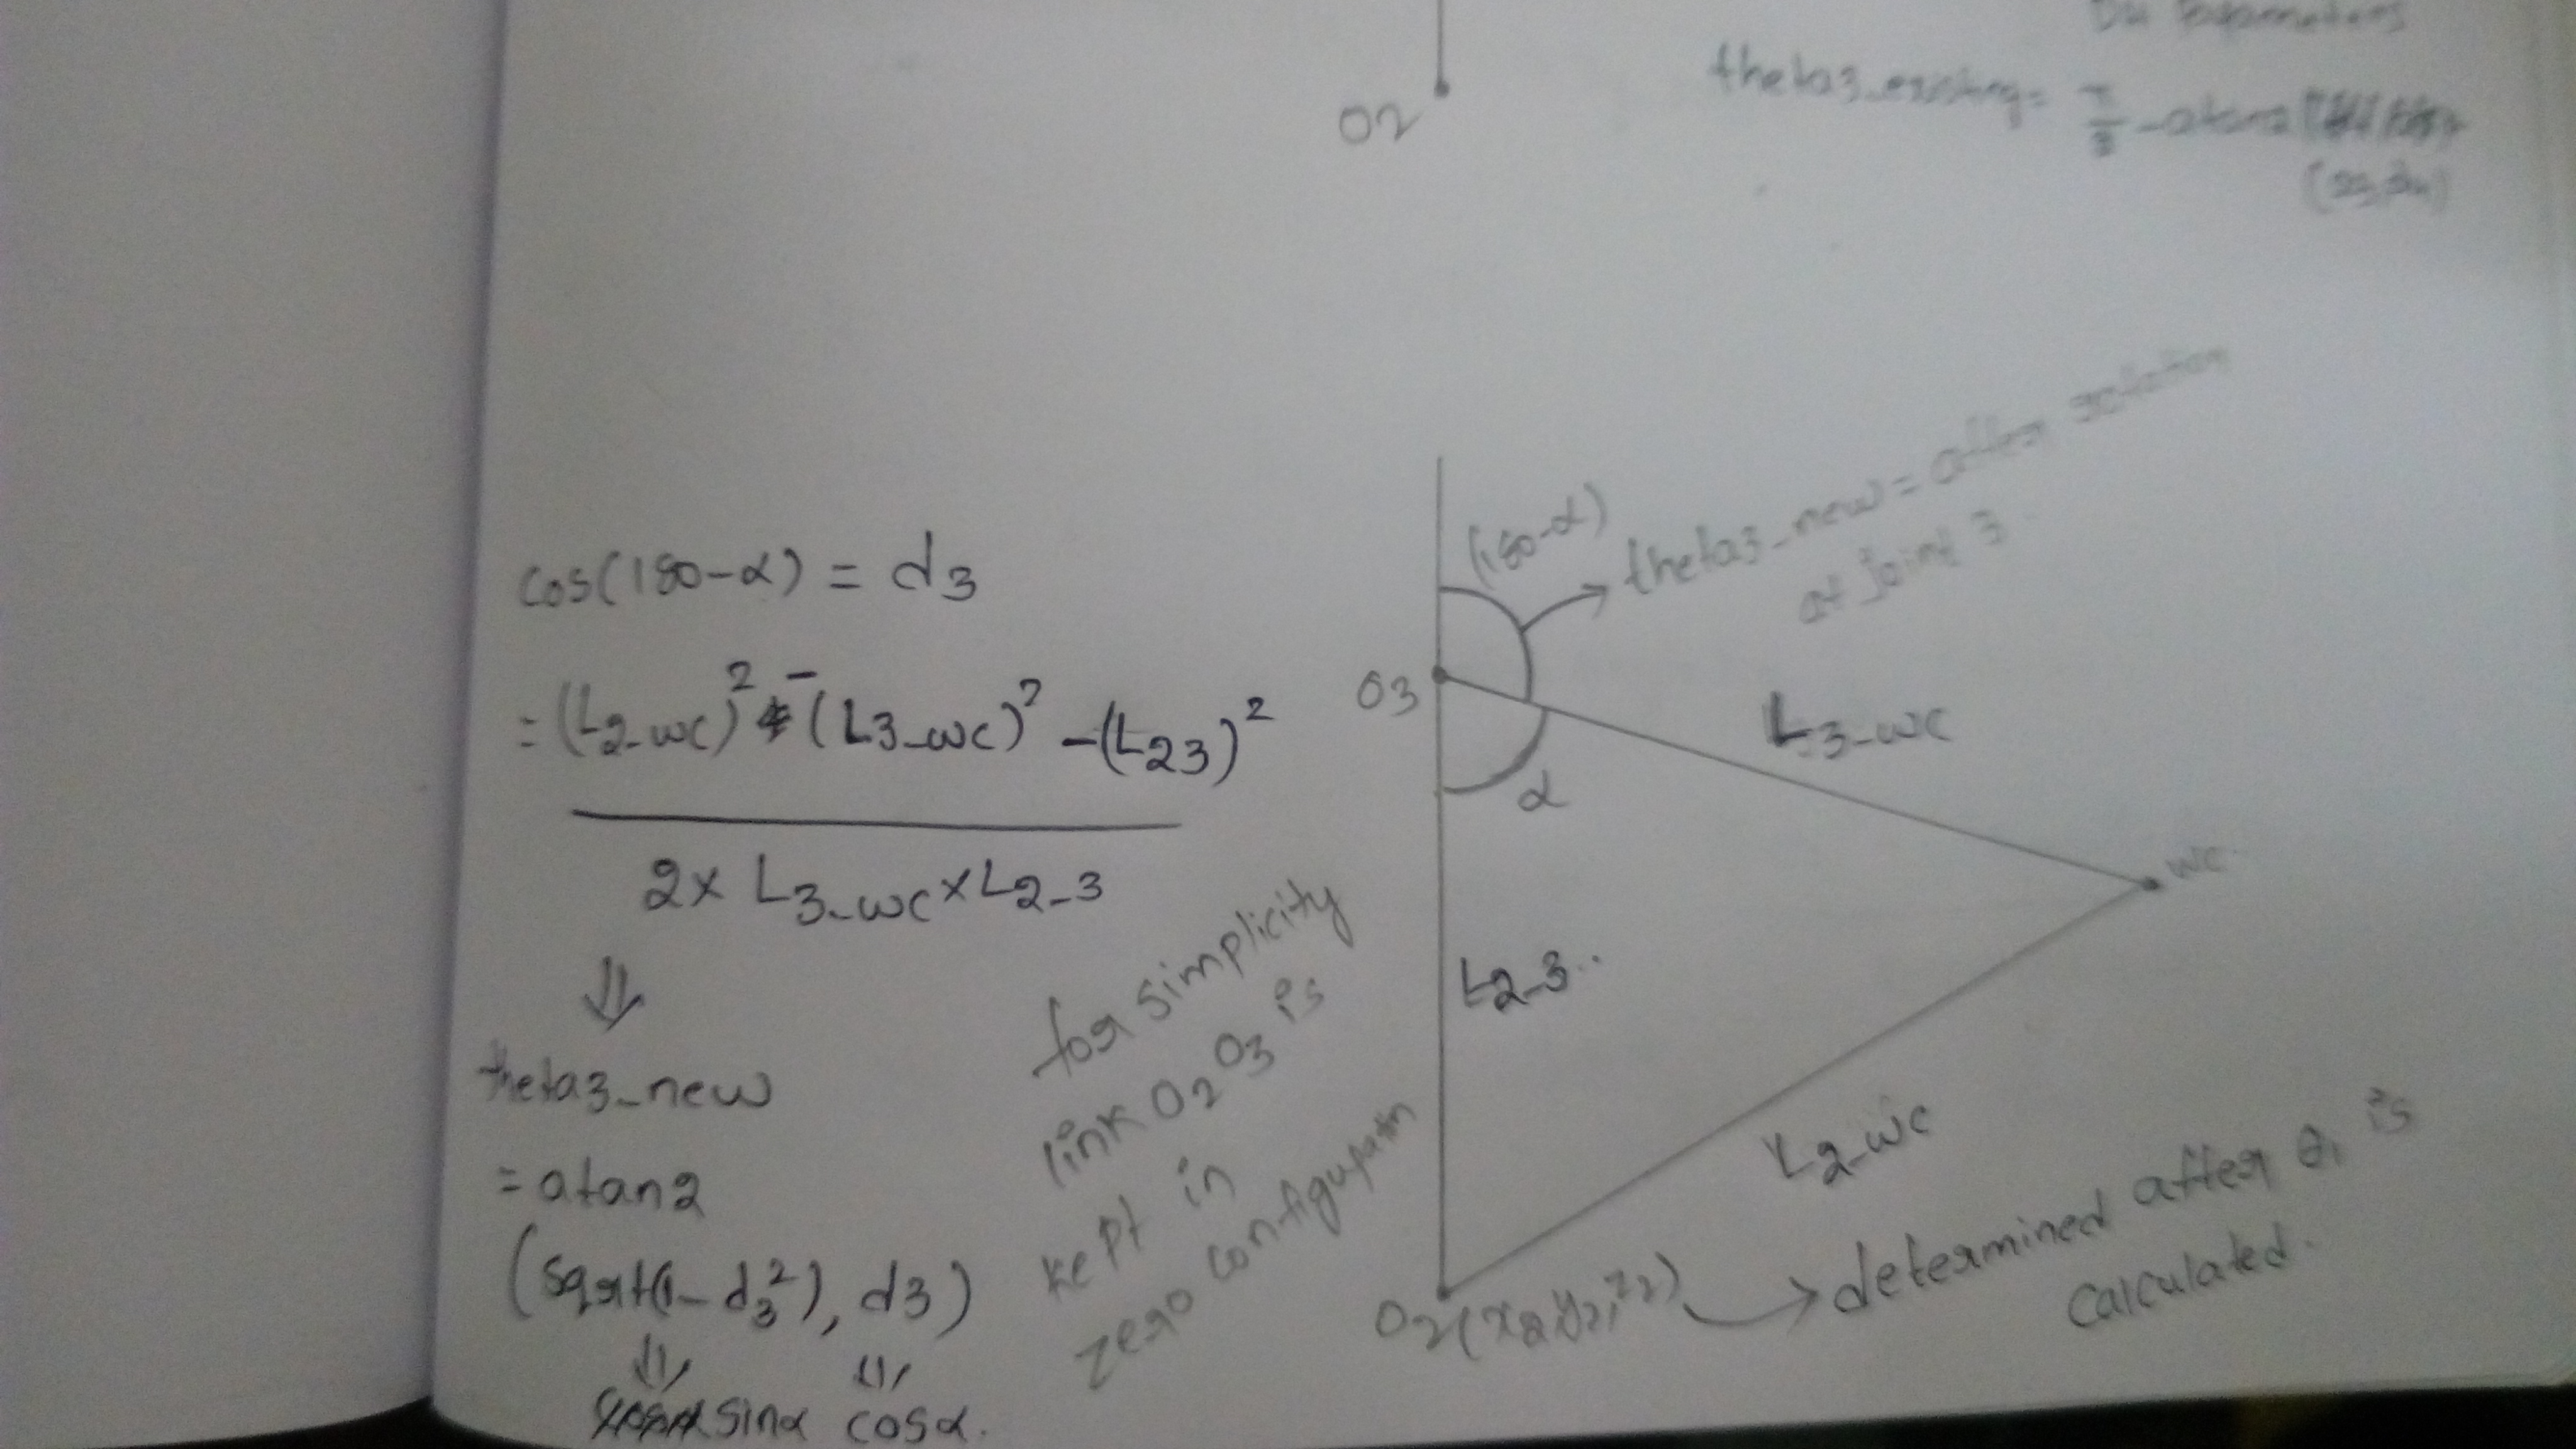 DH Parameters
O2
theta3_existing = π/2 - atan2
cos(180-α) = d3
= (L2_wc)² - (L3_wc)² - (L23)²
2 x L3_wc x L2_3
⇓
theta3_new
= atan2
(sqrt(1 - d3²), d3)
⇓ ⇓
sinα cosα.
for simplicity
link O2 O3 is
kept in
zero configuratn
(180-α)
theta3_new = after rotation
at joint 3
O3
α
L3_wc
wc
L2_3
L2_wc
O2(x2, y2, z2) → determined after θ1 is
calculated.